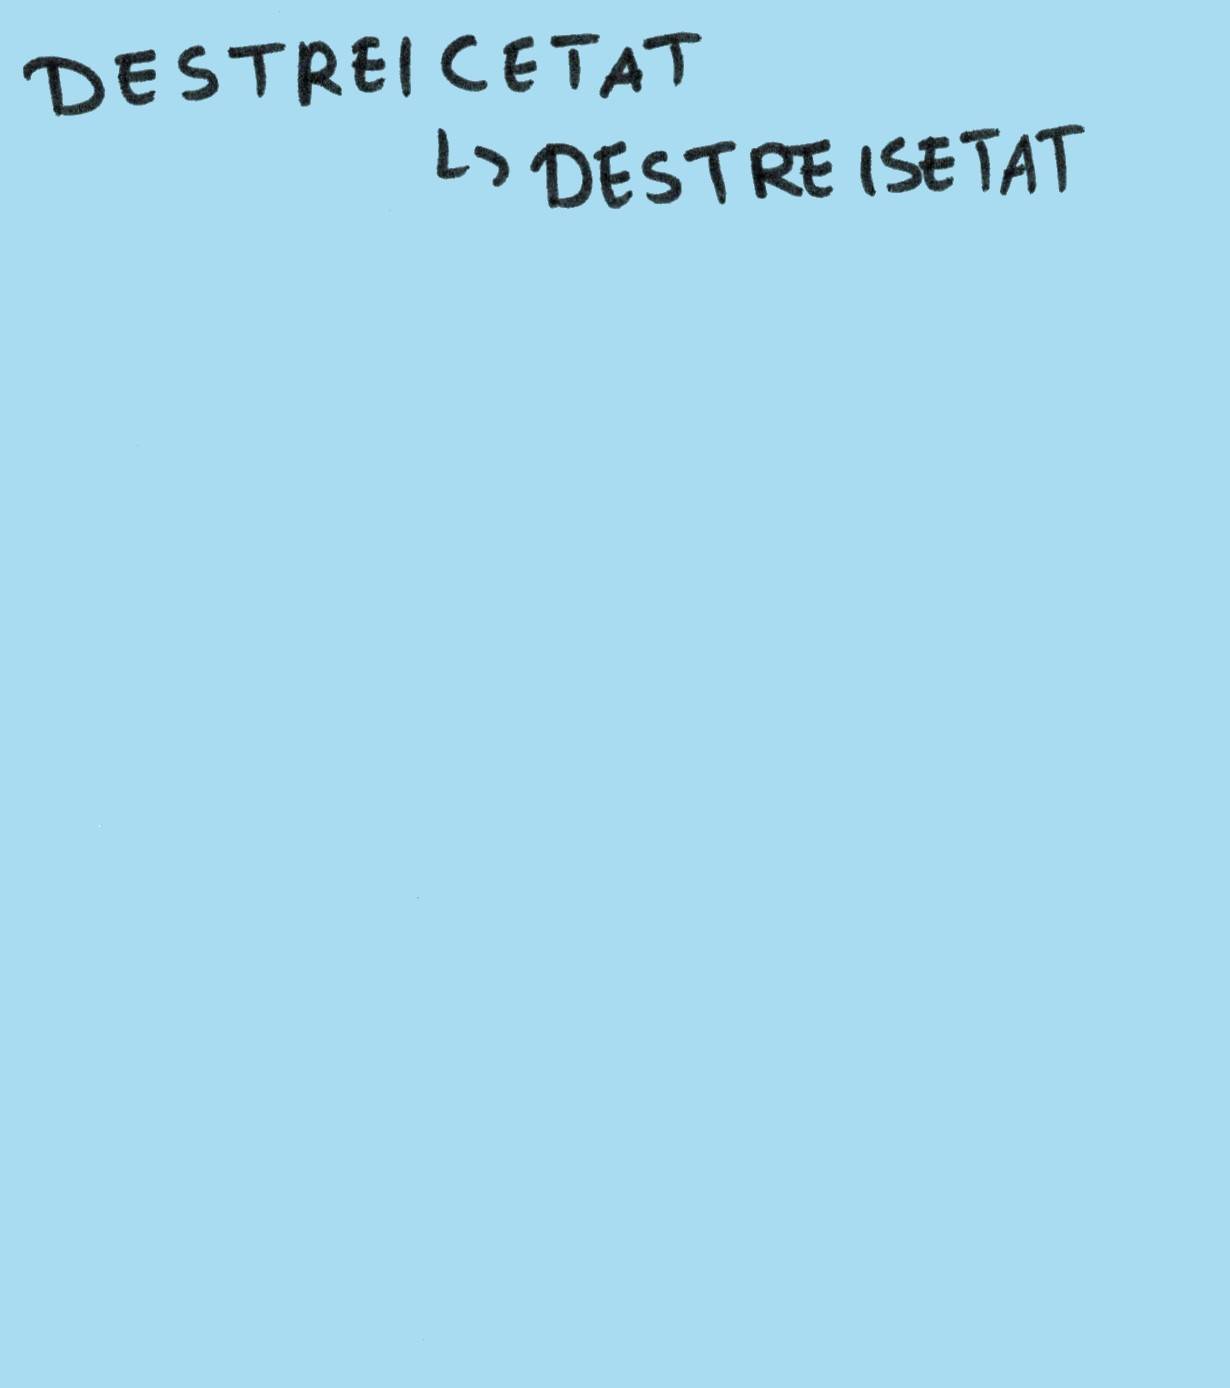 DESTREICETAT
↳ DESTREISETAT